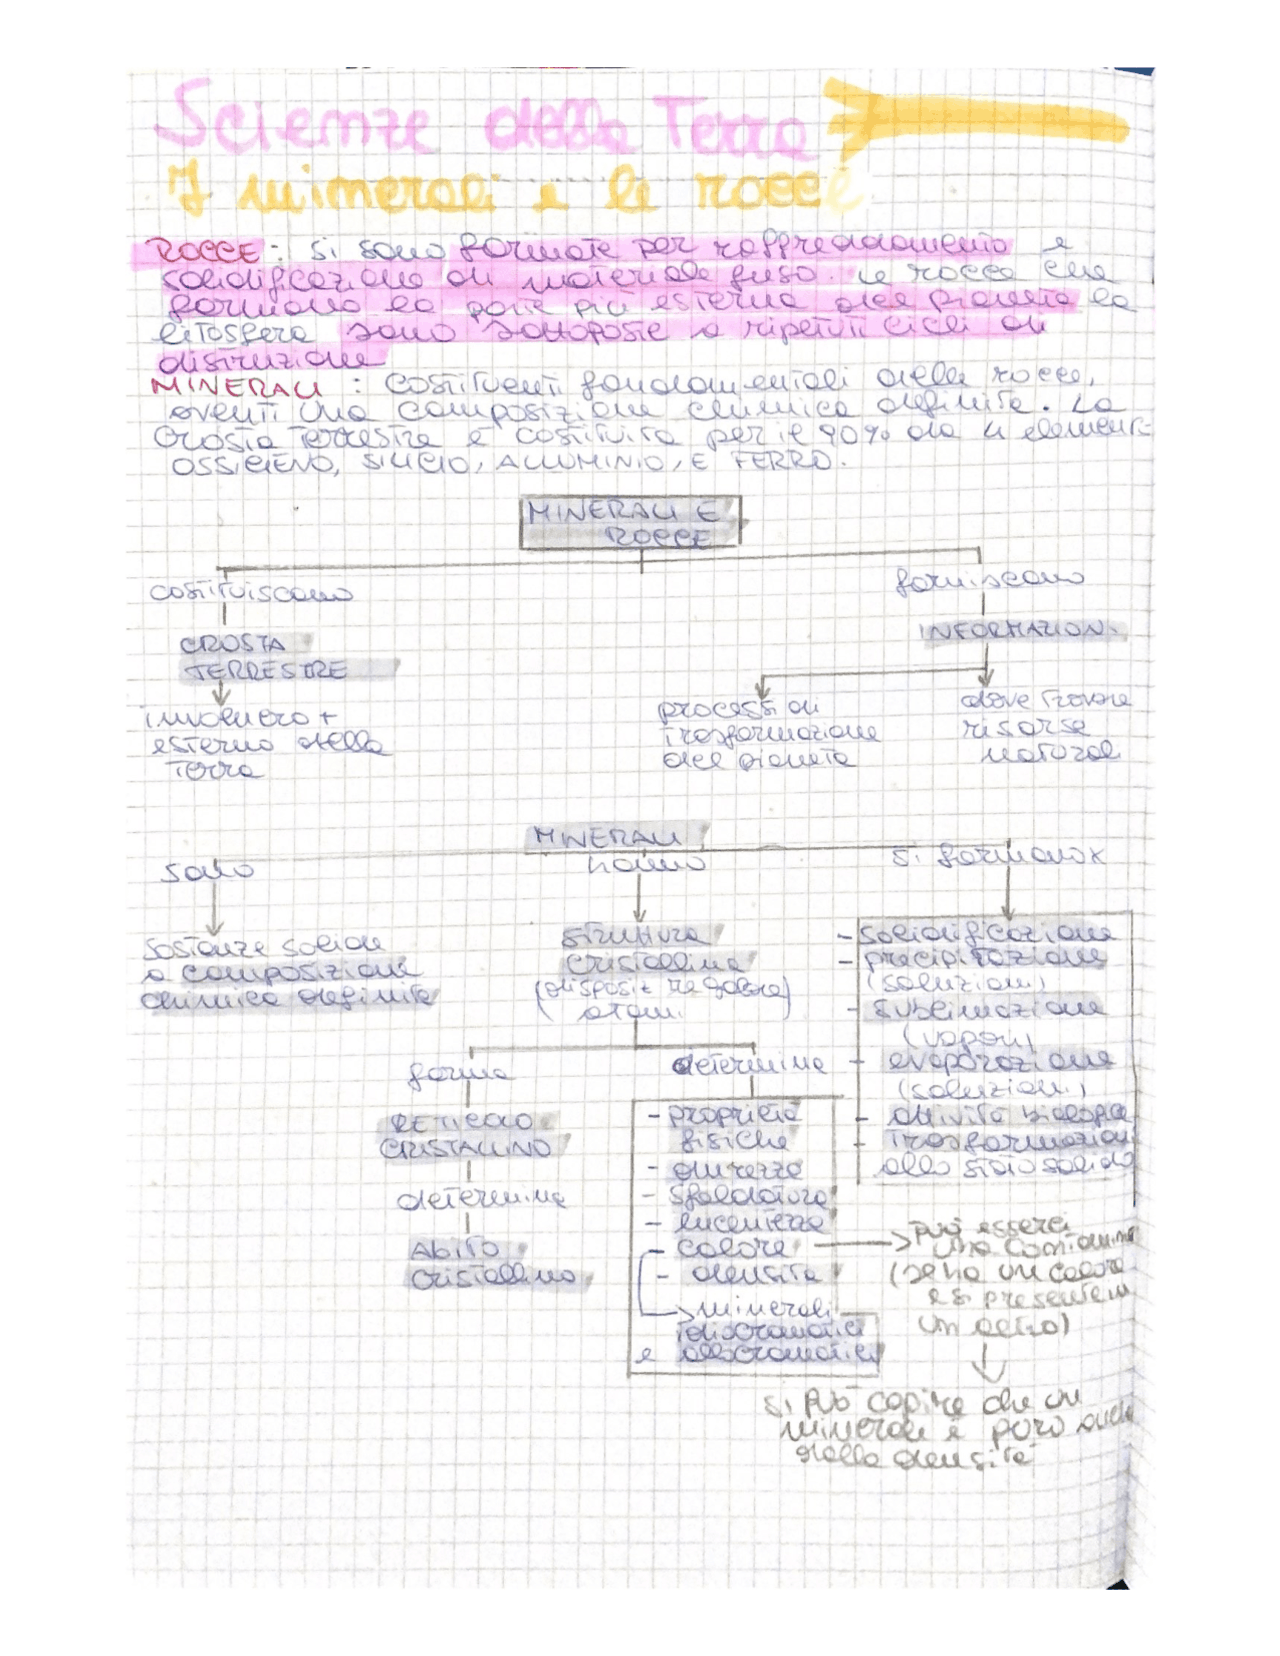 Scienze della Terra
I minerali e le rocce
ROCCE: si sono formate per raffreddamento e
solidificazione di materiale fuso. Le rocce che
formano la parte più esterna del pianeta la
litosfera sono sottoposte a ripetuti cicli di
distruzione
MINERALI: costituenti fondamentali delle rocce,
aventi una composizione chimica definita. La
crosta terrestre è costituita per il 90% da 4 elementi:
OSSIGENO, SILICIO, ALLUMINIO, E FERRO.
MINERALI E
ROCCE
costituiscono
forniscono
CROSTA
TERRESTRE
INFORMAZIONI
involucro +
esterno della
Terra
processi di
trasformazione
del pianeta
dove trovare
risorse
naturali
MINERALI
sono
hanno
si formano x
sostanze solide
a composizione
chimica definita
struttura
cristallina
(disposiz regolare)
atomi
- solidificazione
- precipitazione
(soluzioni)
- sublimazione
(vapori)
- evaporazione
(soluzioni)
- attività biologica
- trasformazioni
allo stato solido
forma
RETICOLO
CRISTALLINO
determina
Abito
cristallino
determina
- proprietà
fisiche
- durezza
- sfaldatura
- lucentezza
- colore
- densità
minerali
idiocromatici
e allocromatici
può esserci
una contamina
(se ha un colore
e si presenta in
un altro)
si può capire che un
minerale è puro anche
dalla densità